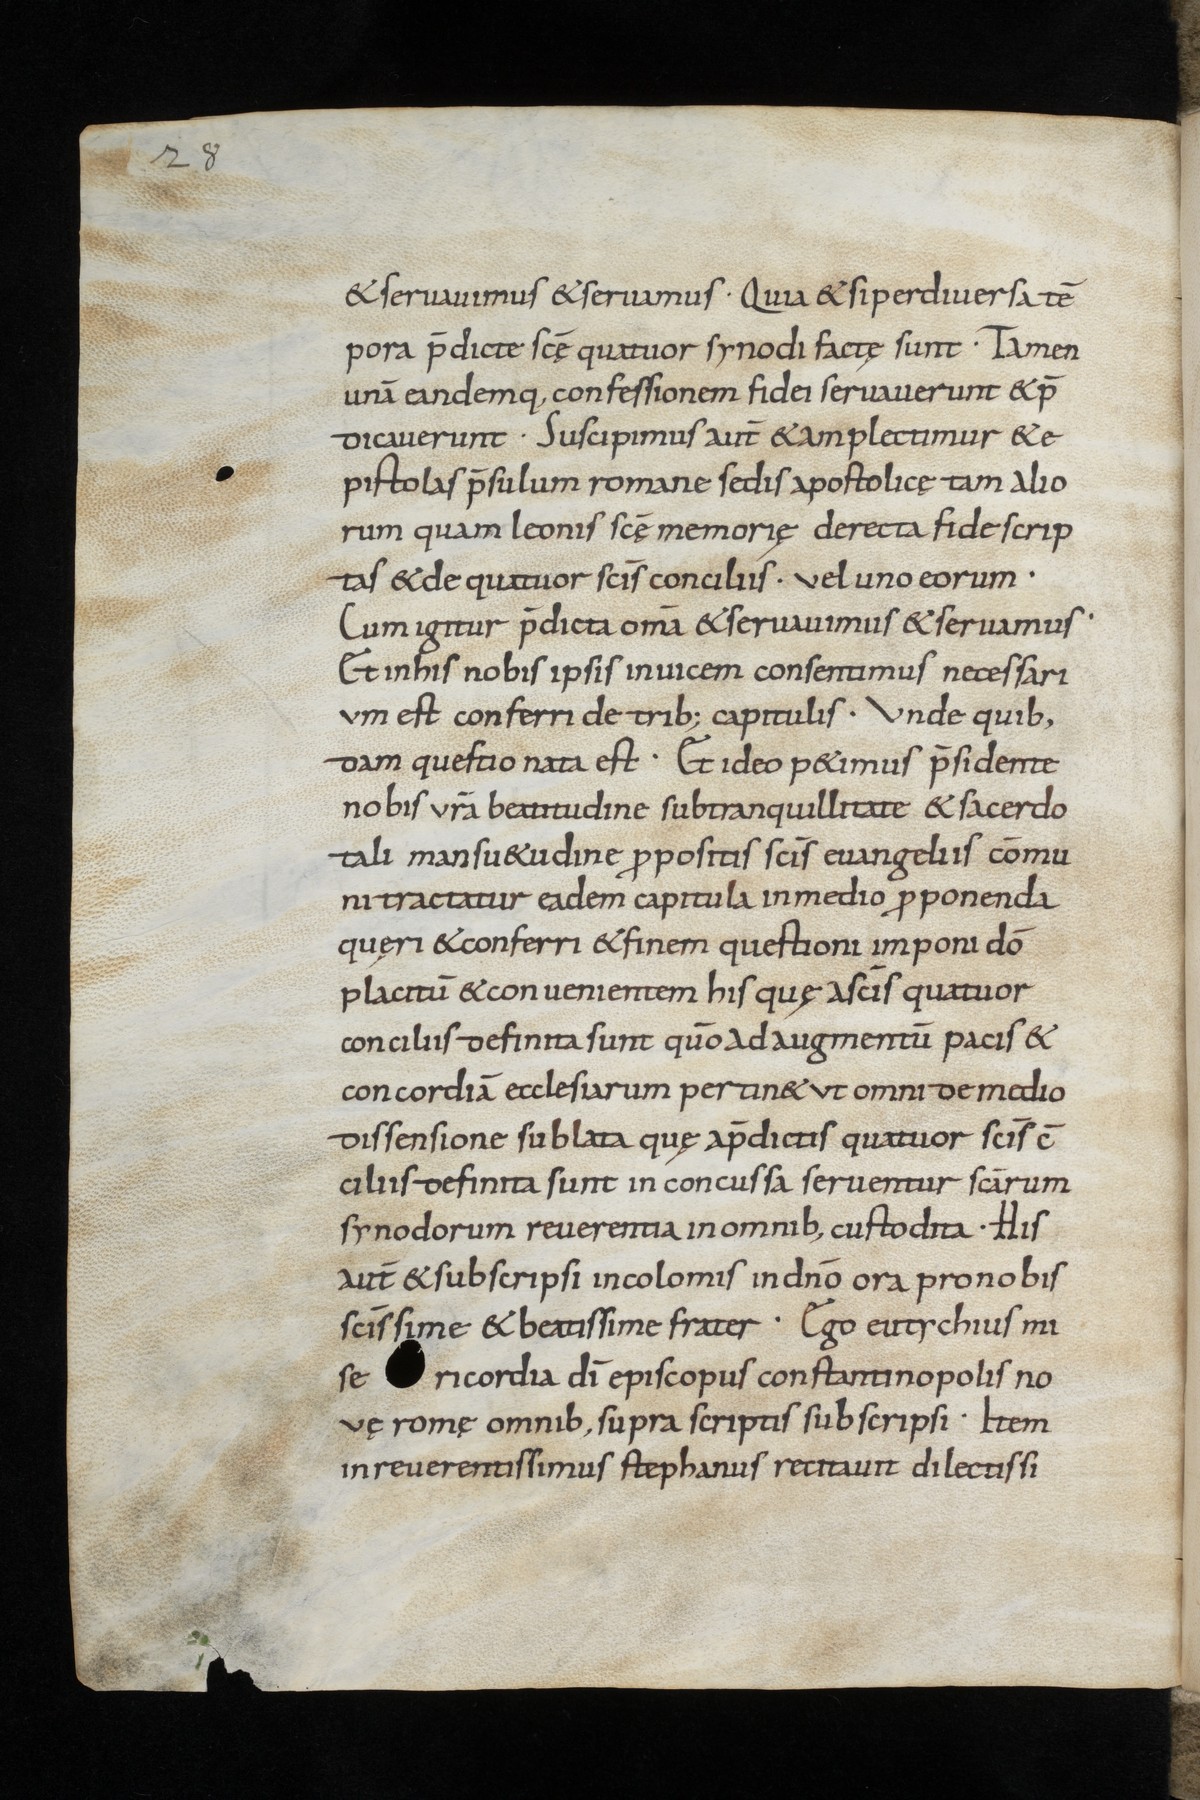 28
&seruauimus &seruamus · Quia &siperdiuersa tē
pora p̄dicte scę̄ quatuor synodi factę sunt · Tamen
unā eandemq, confessionem fidei seruauerunt &p̄
dicauerunt · Suscipimus aut̄ &amplectimur &e
pistolas p̄sulum romane sedis apostolicę tam alio
rum quam leonis scę̄ memorię derecta fide scrip
tas &de quatuor scīs conciliis · vel uno eorum ·
Cum igitur p̄dicta om̄a &seruauimus &seruamus ·
Et inhis nobis ipsis inuicem consentimus necessari
vm est conferri de trib; capitulis · Vnde quib,
dam questio nata est · Et ideo p&imus p̄sidente
nobis vr̄a beatitudine subtranquillitate &sacerdo
tali mansu&udine ꝓpositis scīs euangeliis cōmu
ni tractatur eadem capitula inmedio ꝓponenda
quęri &conferri &finem questioni imponi dō
placitū &conuenientem his quę ascīs quatuor
conciliis definita sunt qūo adaugmentū pacis &
concordiā ecclesiarum pertin& vt omni de medio
dissensione sublata quę ap̄dictis quatuor scīs c̄
ciliis definita sunt inconcussa seruentur scārum
synodorum reuerentia inomnib, custodita · His
aut̄ &subscripsi incolomis indn̄o ora pronobis
scīssime &beatissime frater · Ego eutychius mi
se ricordia dī episcopus constantinopolis no
vę romę omnib, supra scriptis subscripsi · Item
inreuerentissimus stephanus recitauit dilectissi